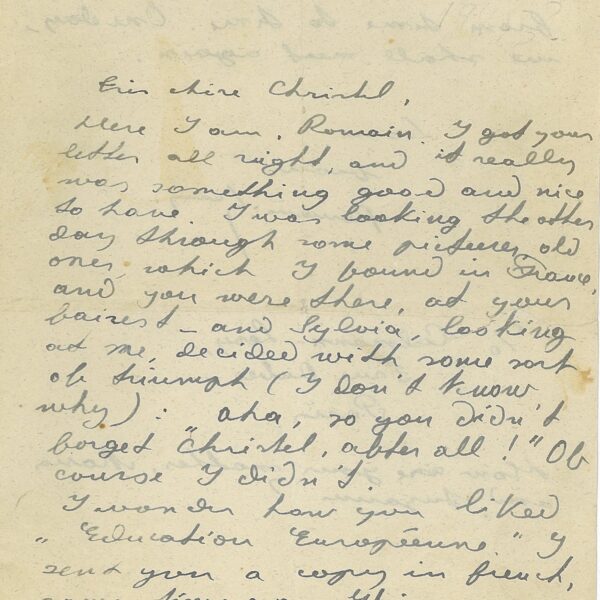 chère Christel,
Here I am, Romain. I got your
letter all right, and it really
was something good and nice
to have. I was looking the other
day through some pictures, old
ones, which I found in France,
and you were there, at your
fairest _ and Sylvia, looking
at me, decided with some sort
of triumph (I don't know
why) : aha, so you didn't
forget "Christel, after all!" Of
course I didn't.
I wonder how you liked
„ Education Européenne." I
sent you a copy in french,
some time